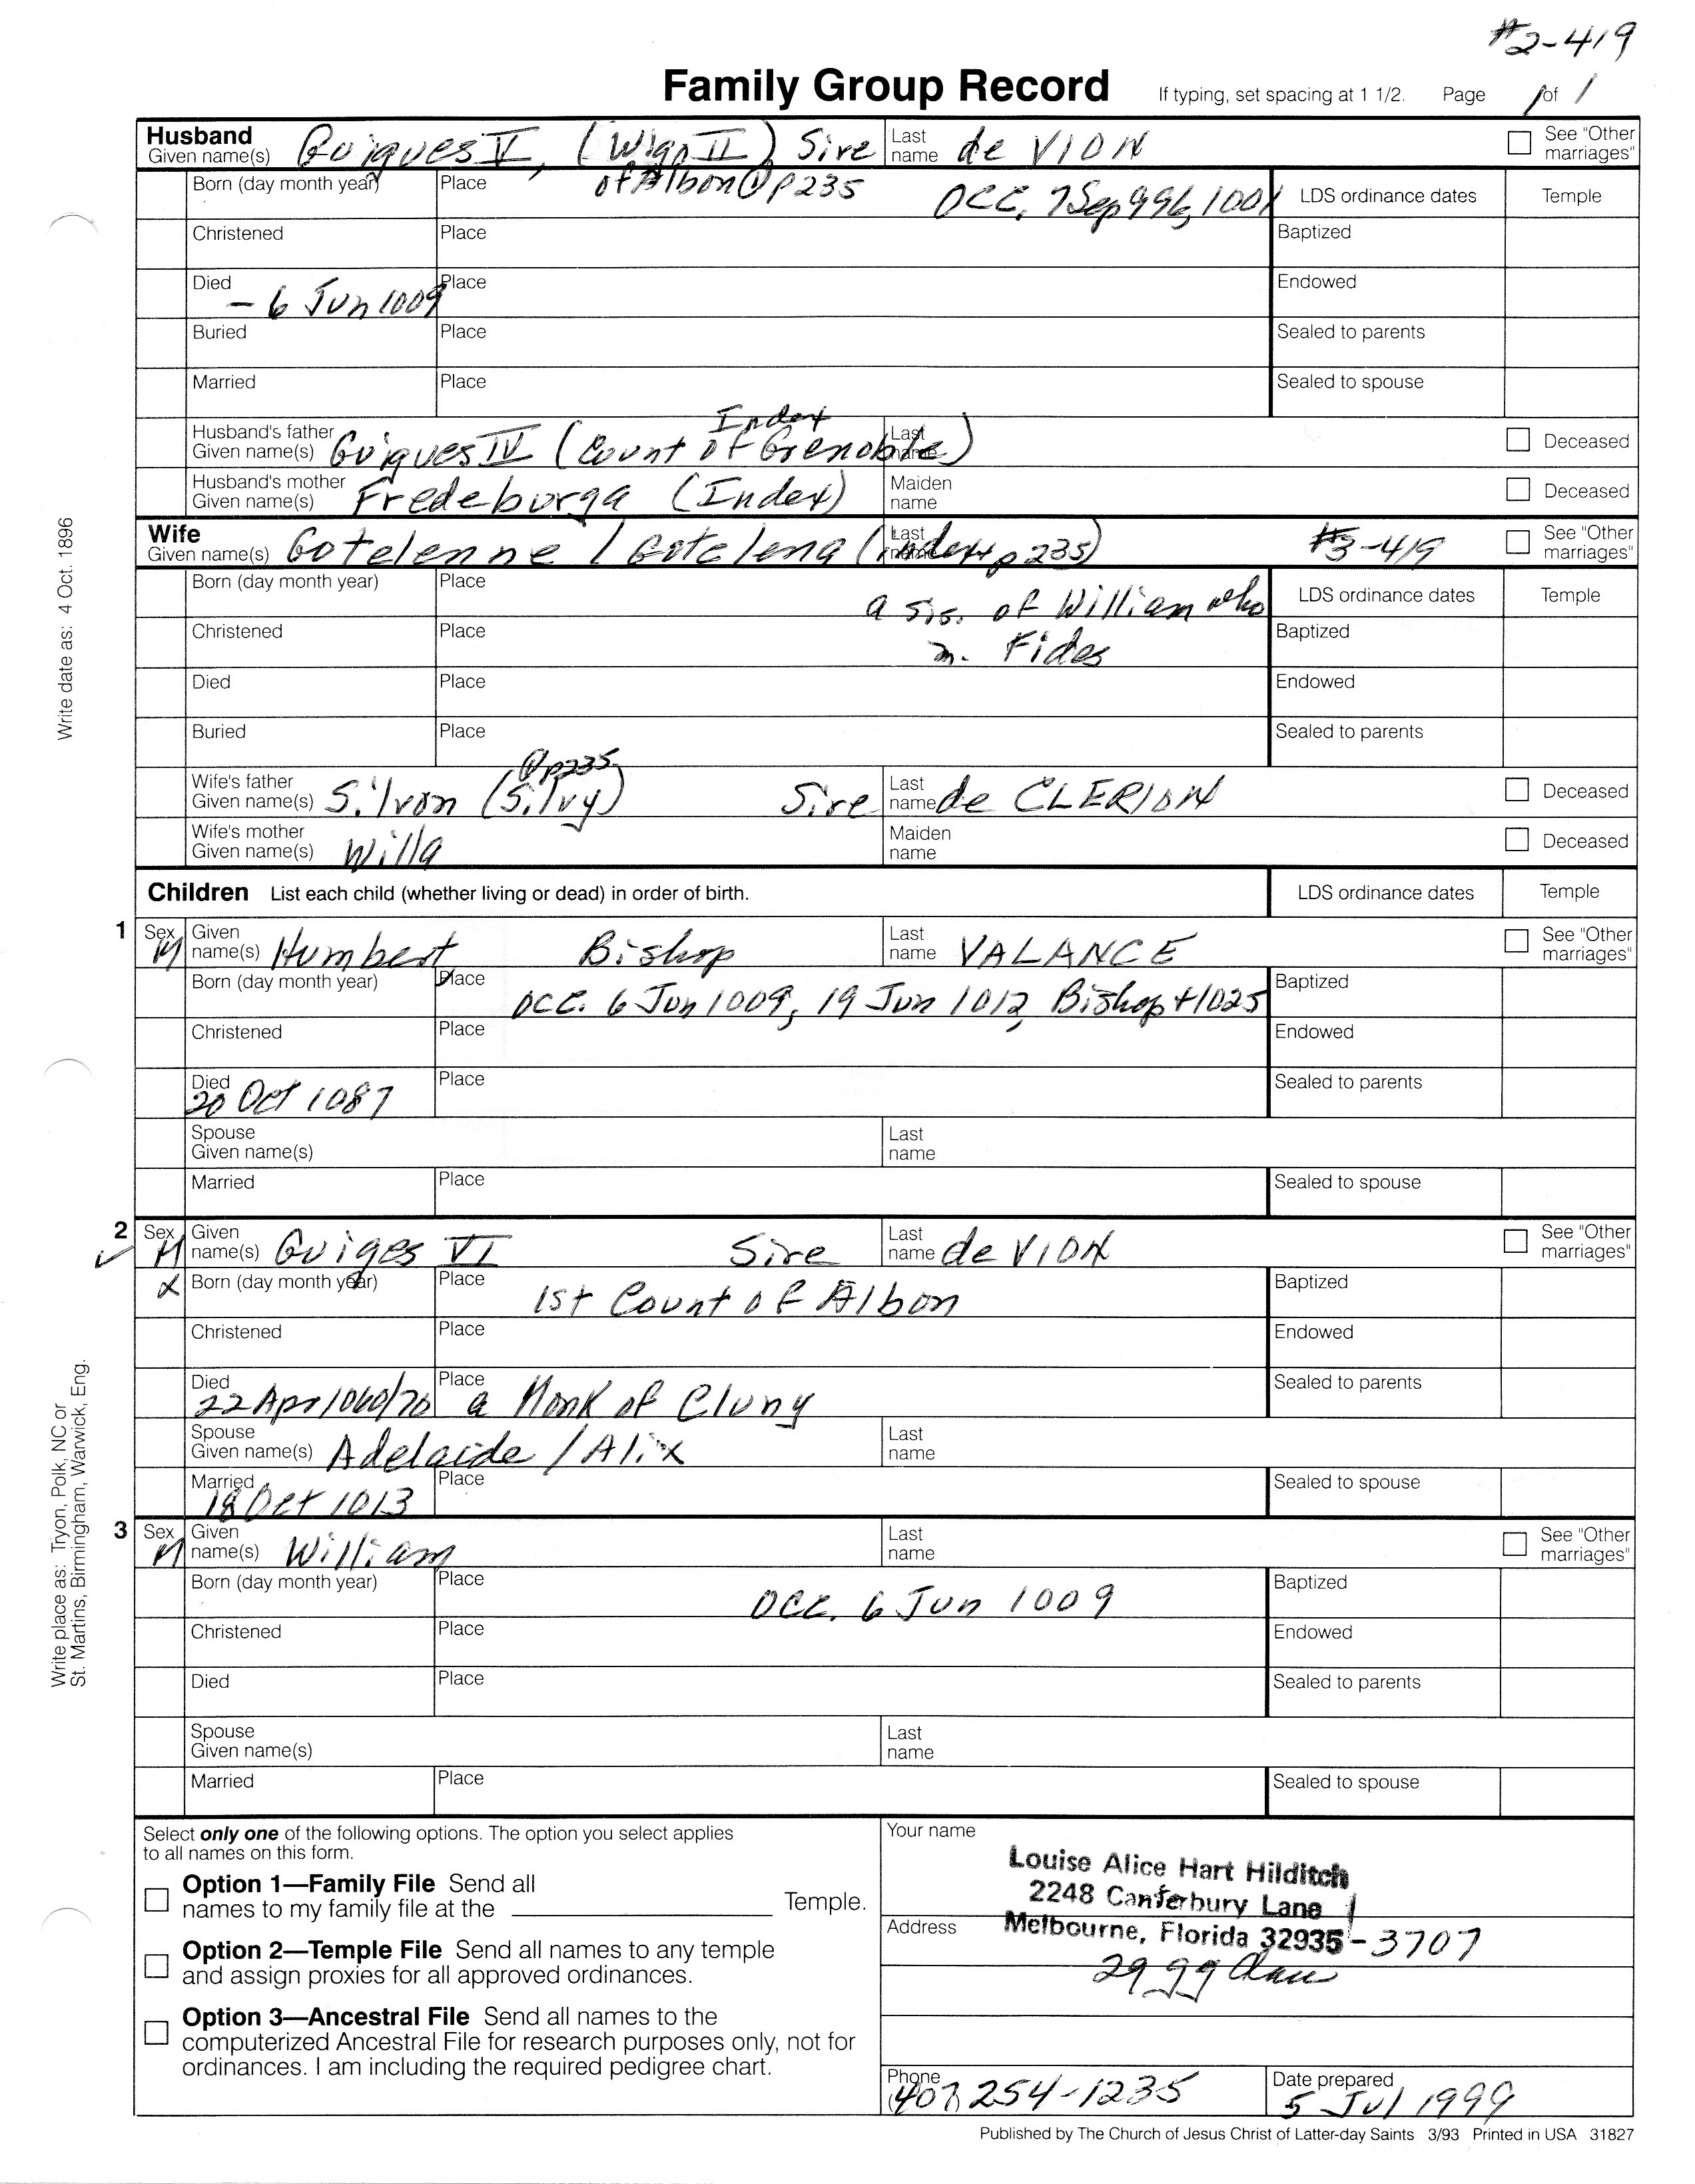 #2-419
Family Group Record If typing, set spacing at 1 1/2. Page 1 of 1
Husband Given name(s) Guigues V, (Wigo II) Sire Last name de VION See "Other marriages"
Born (day month year) Place of Albon @ p235 OCC. 7 Sep 996, 1001 LDS ordinance dates Temple
Christened Place Baptized
Died - 6 Jun 1009 Place Endowed
Buried Place Sealed to parents
Married Place Sealed to spouse
Index
Husband's father Given name(s) Guigues IV (Count of Grenoble) Last name Deceased
Husband's mother Given name(s) Fredeburga (Index) Maiden name Deceased
Wife Given name(s) Gotelenne / Gotelena (Index p235) Last name #3-419 See "Other marriages"
Born (day month year) Place a sis. of William who LDS ordinance dates Temple
Christened Place m. Fides Baptized
Died Place Endowed
Buried Place Sealed to parents
@p235
Wife's father Given name(s) Silvon (Silvy) Sire Last name de CLERION Deceased
Wife's mother Given name(s) Willa Maiden name Deceased
Children List each child (whether living or dead) in order of birth. LDS ordinance dates Temple
1 Sex M Given name(s) Humbert Bishop Last name VALANCE See "Other marriages"
Born (day month year) Place OCC. 6 Jun 1009, 19 Jun 1012, Bishop +1025 Baptized
Christened Place Endowed
Died 20 Oct 1087 Place Sealed to parents
Spouse Given name(s) Last name
Married Place Sealed to spouse
2 Sex M Given name(s) Guiges VI Sire Last name de VION See "Other marriages"
X Born (day month year) Place 1st Count of Albon Baptized
Christened Place Endowed
Died 22 Apr 1060/70 Place a Monk of Cluny Sealed to parents
Spouse Given name(s) Adelaide / Alix Last name
Married 18 Oct 1013 Place Sealed to spouse
3 Sex M Given name(s) William Last name See "Other marriages"
Born (day month year) Place OCC. 6 Jun 1009 Baptized
Christened Place Endowed
Died Place Sealed to parents
Spouse Given name(s) Last name
Married Place Sealed to spouse
Write date as: 4 Oct. 1896
Write place as: Tryon, Polk, NC or
St. Martins, Birmingham, Warwick, Eng.
Select only one of the following options. The option you select applies
to all names on this form.
Option 1—Family File Send all
names to my family file at the Temple.
Option 2—Temple File Send all names to any temple
and assign proxies for all approved ordinances.
Option 3—Ancestral File Send all names to the
computerized Ancestral File for research purposes only, not for
ordinances. I am including the required pedigree chart.
Your name
Louise Alice Hart Hilditch
2248 Canterbury Lane
Address Melbourne, Florida 32935-3707
29 gg
Phone (407) 254-1235 Date prepared 5 Jul 1999
Published by The Church of Jesus Christ of Latter-day Saints 3/93 Printed in USA 31827